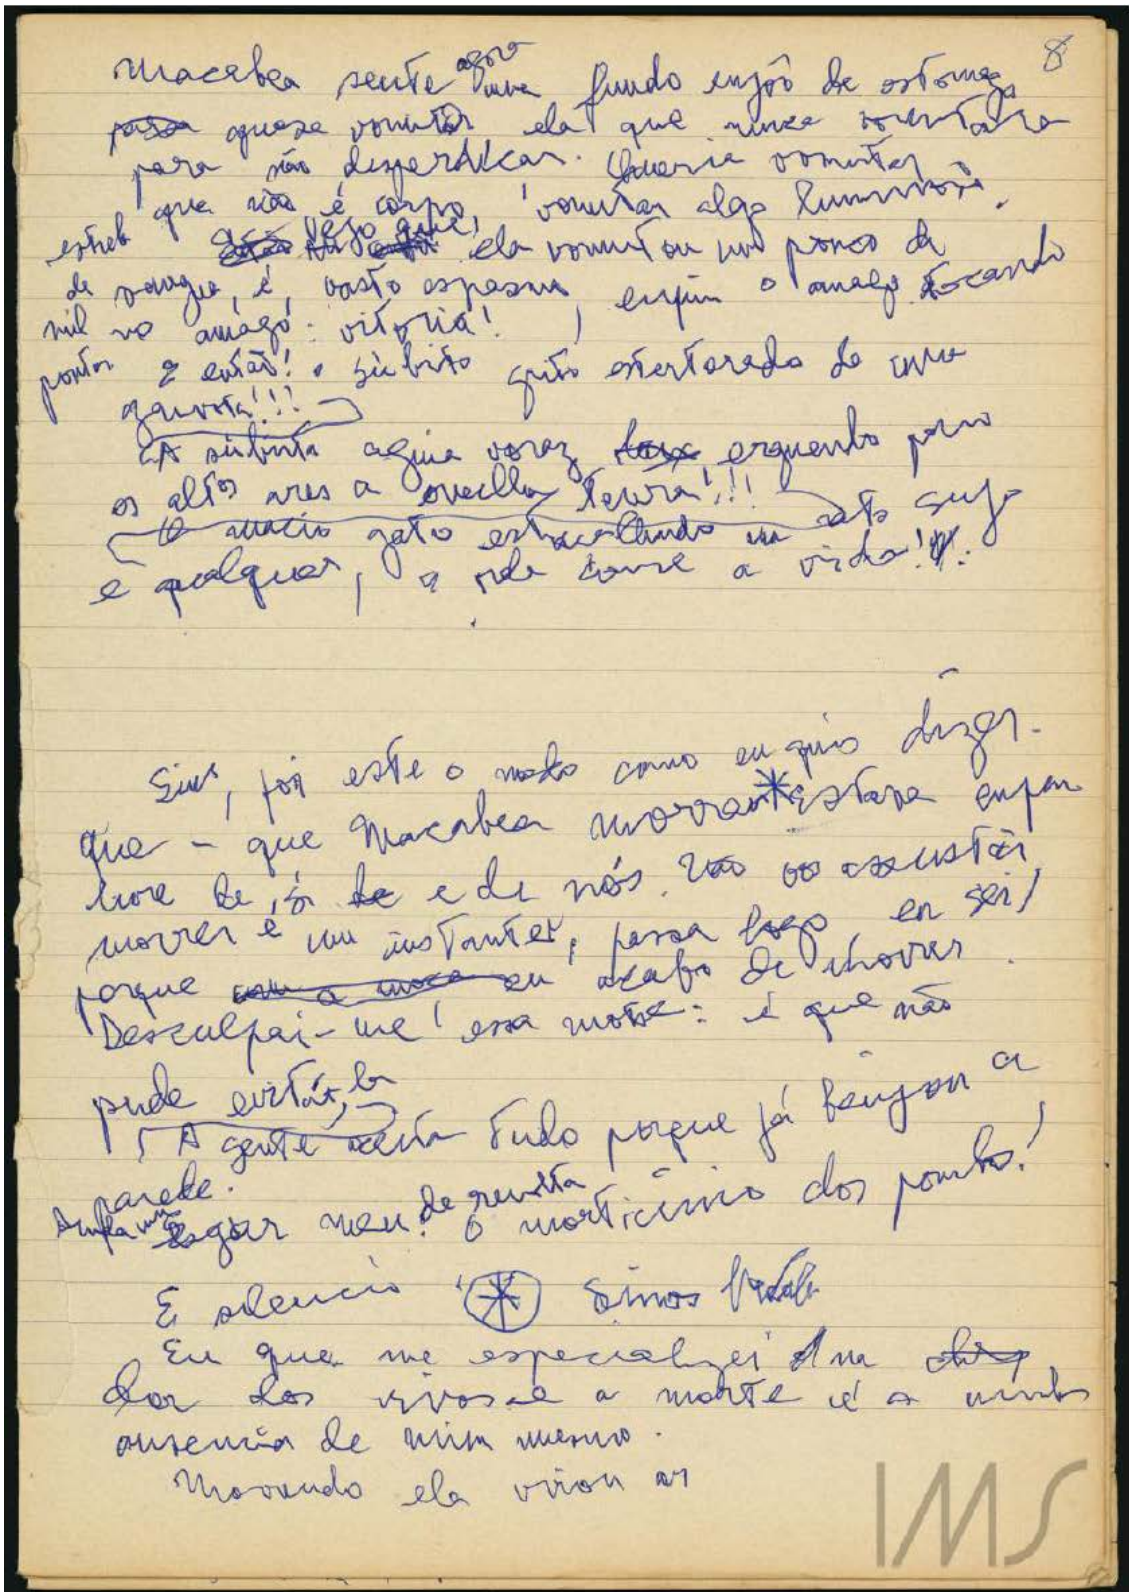 8
Macabea sente agora um fundo enjôo de estomago
passa quase vomitar ela que nunca vomitara
para não desperdiçar. Queria vomitar
que não é corpo, vomitar algo luminoso.
estrela
de
mil
pontas
vejo que, ela vomitou um pouco de
sangue, é, vasto espasmo, enfim o amago tocando
no amago: vitoria!
e então! o súbito grito estertorado de uma
gaivota!!!
A subita aguia voraz erguendo para
os altos ares a ovelha tenra!!!
O macio gato estraçalhando um rato sujo
e qualquer, a vida come a vida!!!.
Sim, foi este o modo como eu quis dizer
que - que Macabea morrera * Estava enfim
livre de si de e de nós. Não os assusteis,
morrer é um instante, passa logo eu sei
porque com a moça eu acabo de morrer.
Desculpai-me essa morte: é que não
pude evitá-la
A gente aceita tudo porque já beijou a
parede.
de revolta
meu. O morticinio dos pombos!
E silencio * Sinos
Eu que me especializei na
dor dos vivos e a morte é a minha
ausencia de mim mesmo.
Morrendo ela virou ar
IMS